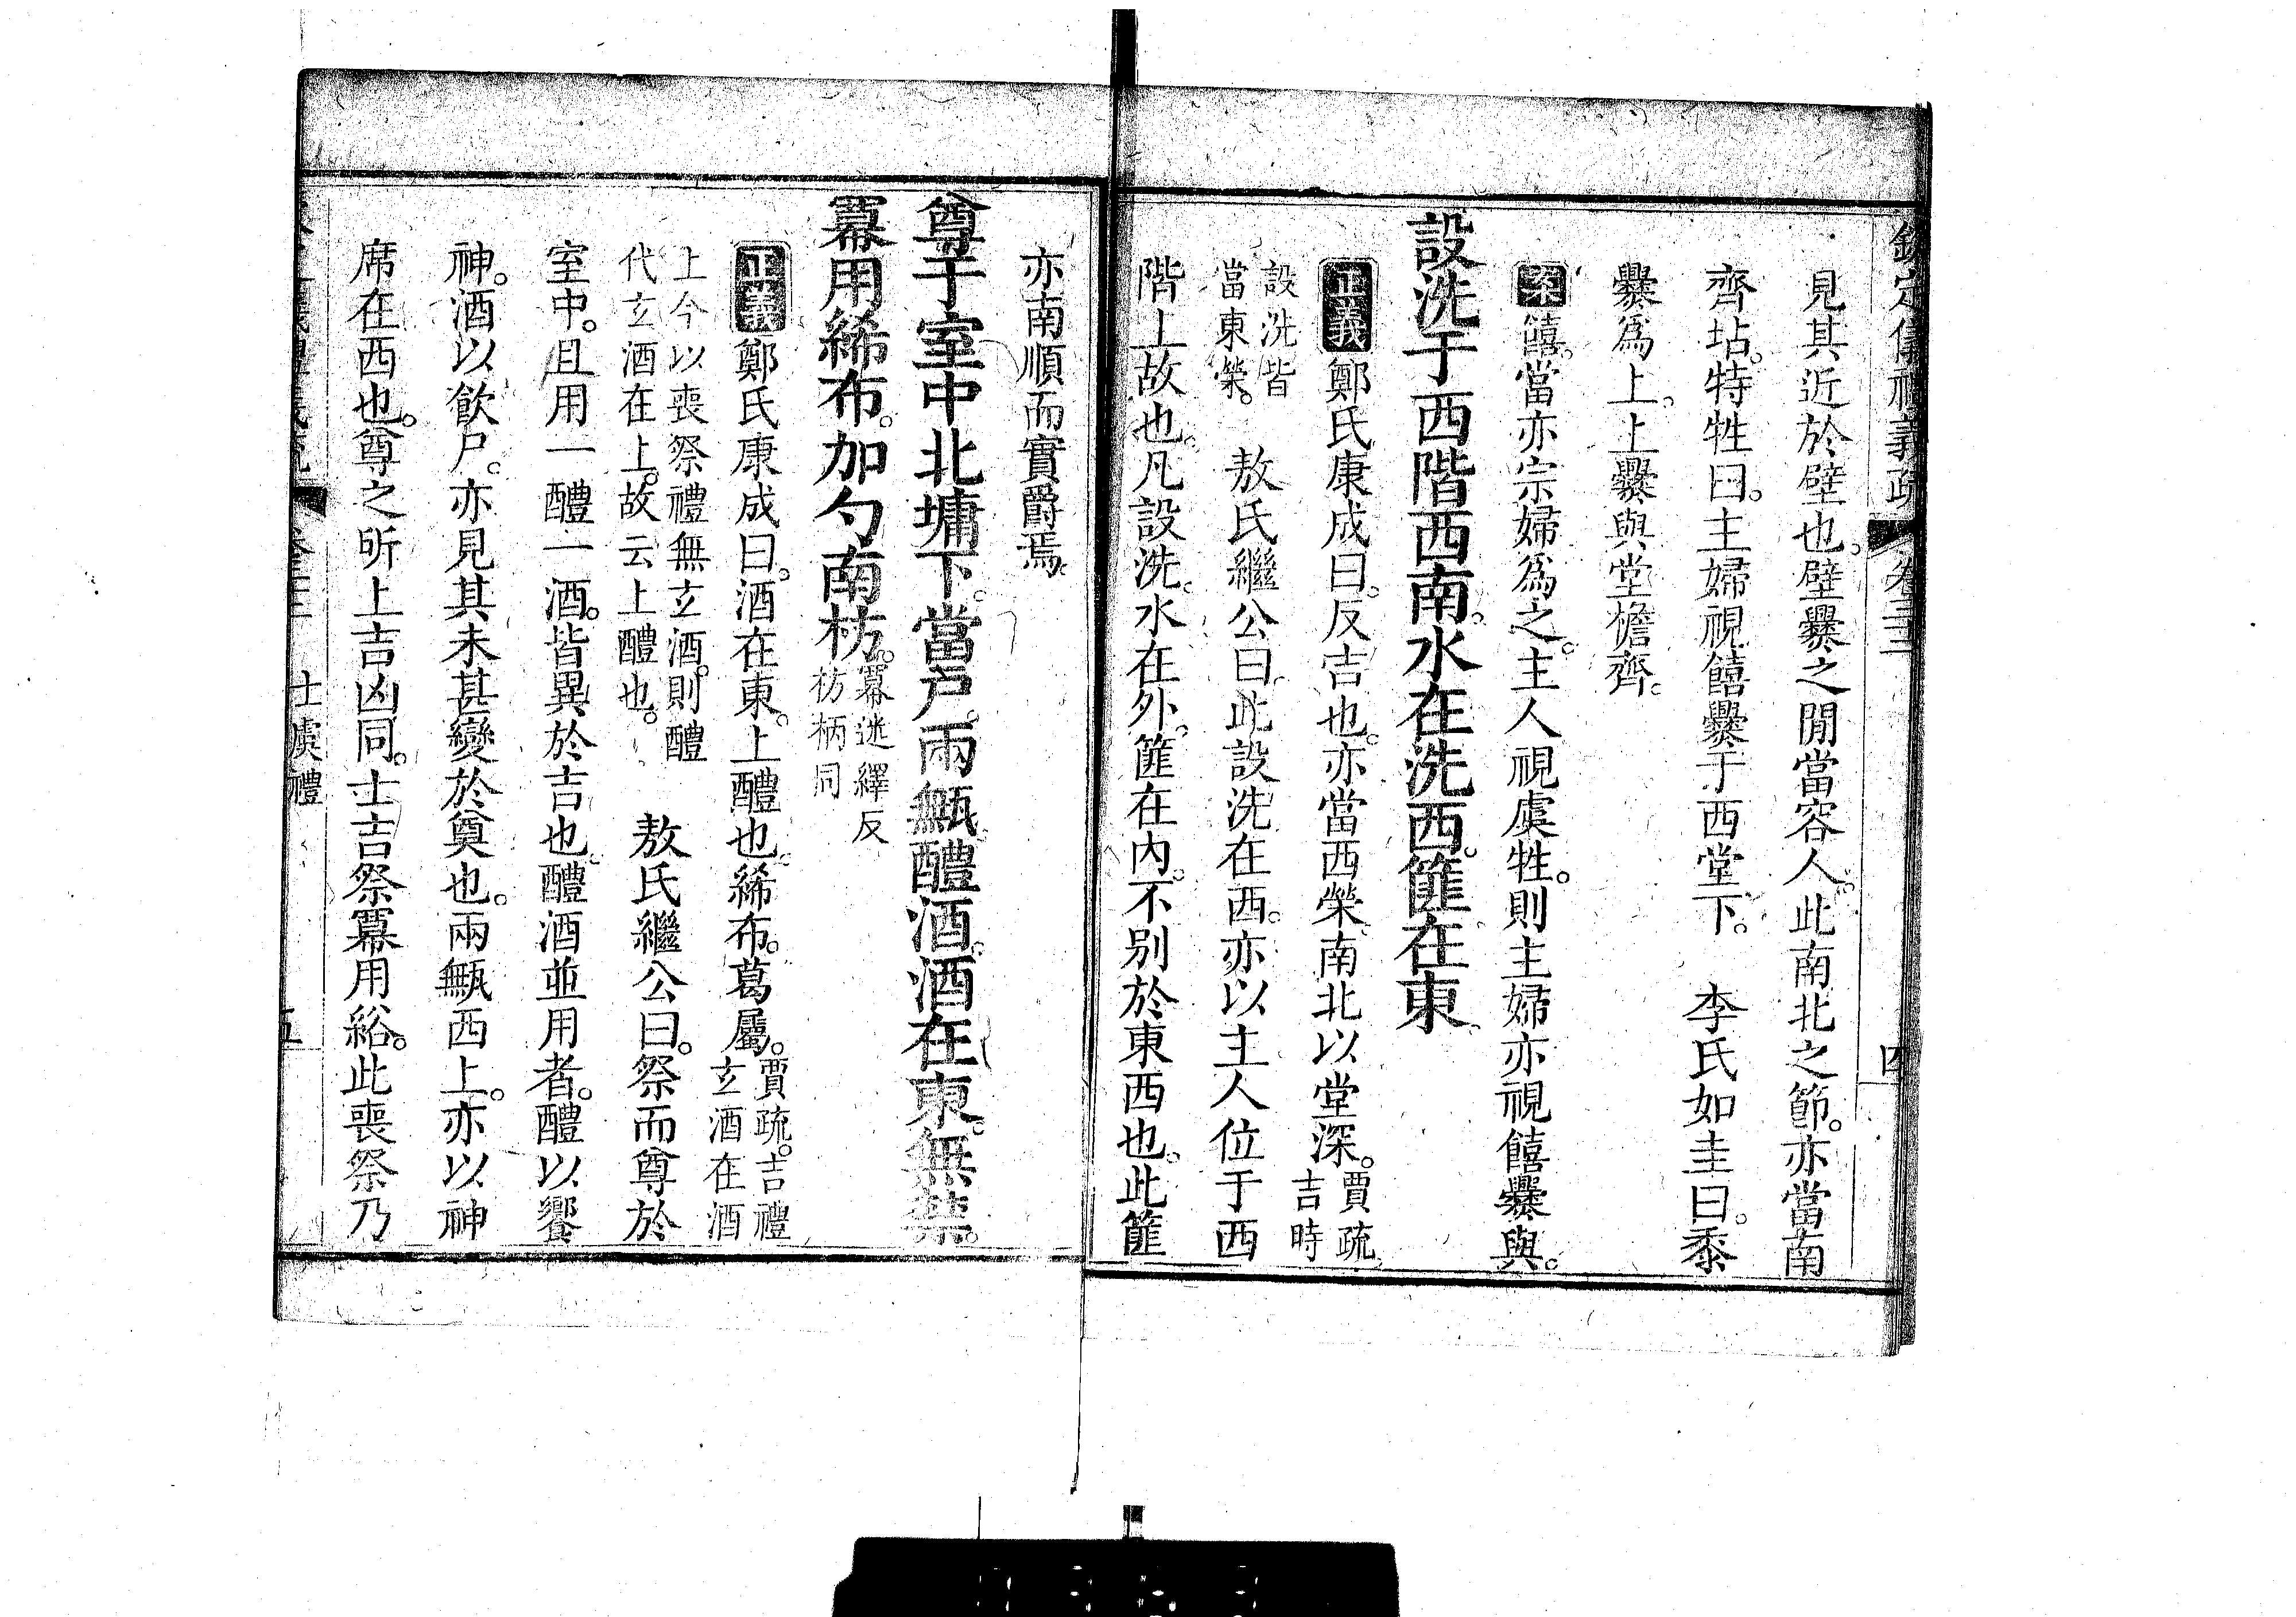 欽定儀禮義疏 卷三十三 四
見其近於壁也。壁爨之閒當容人。此南北之節。亦當南
齊坫。特牲曰。主婦視饎爨于西堂下。 李氏如圭曰。黍
爨爲上。上爨與堂檐齊。
案饎。當亦宗婦爲之。主人視虞牲。則主婦亦視饎爨與。
設洗于西階西南。水在洗西。篚在東。
正義鄭氏康成曰。反吉也。亦當西榮。南北以堂深。賈疏吉時
設洗皆當東榮。 敖氏繼公曰。此設洗在西。亦以主人位于西
階上故也。凡設洗。水在外。篚在內。不别於東西也。此篚
亦南順而實爵焉。
尊于室中北墉下。當戶。兩甒醴酒。酒在東。無禁。
冪用絺布。加勺南枋。冪迷繹反枋柄同
正義鄭氏康成曰。酒在東。上醴也。絺布。葛屬。賈疏。吉禮玄酒在酒
上今以喪祭禮無玄酒。則醴代玄酒在上。故云上醴也。 敖氏繼公曰。祭而尊於
室中。且用一醴一酒。皆異於吉也。醴酒並用者。醴以饗
神。酒以飲尸。亦見其未甚變於奠也。兩甒西上。亦以神
席在西也。尊之所上吉凶同。士吉祭冪用綌。此喪祭乃
士虞禮 五